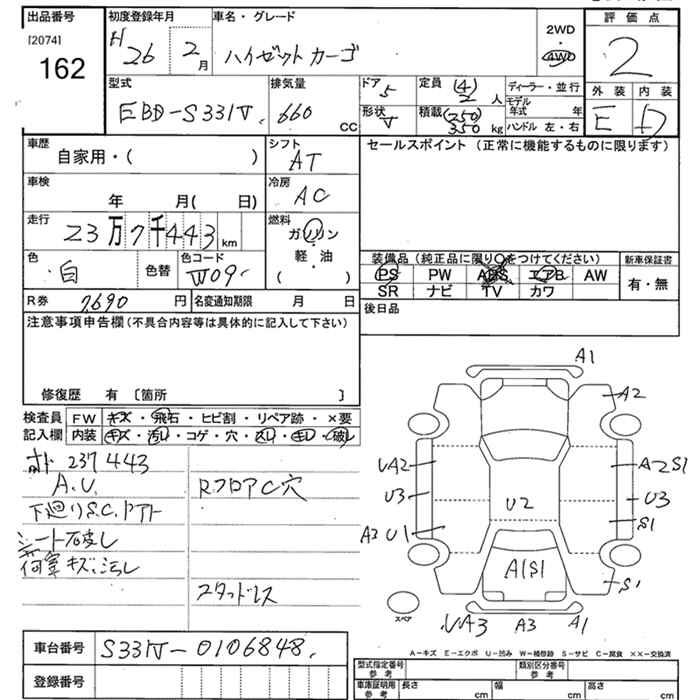 出品番号
[2074]
162
初度登録年月
H 26 2 月
車名・グレード
ハイゼットカーゴ
2WD
・
4WD
評価点
2
外装 内装
E D
型式
EBD-S331V
排気量
660 CC
ドア 5
形状 V
定員 (4) 2 人
積載 (250) 350 kg
ディーラー・並行
モデル年式 年
ハンドル 左・右
車歴
自家用・( )
シフト
AT
車検
年 月( 日)
冷房
AC
走行
23万7千443 km
燃料
ガソリン
軽・油
( )
色
白
色替
色コード
W09
R券 7,690 円
名変通知期限 月 日
セールスポイント(正常に機能するものに限ります)
装備品(純正品に限り○をつけてください)
PS PW ABS エアB AW
SR ナビ TV カワ
新車保証書
有・無
後日品
注意事項申告欄(不具合内容等は具体的に記入して下さい)
修復歴 有 〔箇所 〕
検査員記入欄
FW キズ・飛石・ヒビ割・リペア跡・×要
内装 キズ・汚レ・コゲ・穴・スレ・キレ・破レ
237443
A.U.
RフロアC穴
下廻りS.C.
シート破レ
荷室キズ、汚レ
スタッドレス
A1
A2
UA2
A2 S1
U3
U2
U3
A2 U1
S1
A1S1
S1
スペア
UA3
A3
A1
車台番号 S331V-0106848
登録番号
A-キズ E-エクボ U-凹み W-補修跡 S-サビ C-腐食 XX-交換済
型式指定番号 参考
類別区分番号 参考
車庫証明用 参考
長さ cm
幅 cm
高さ cm